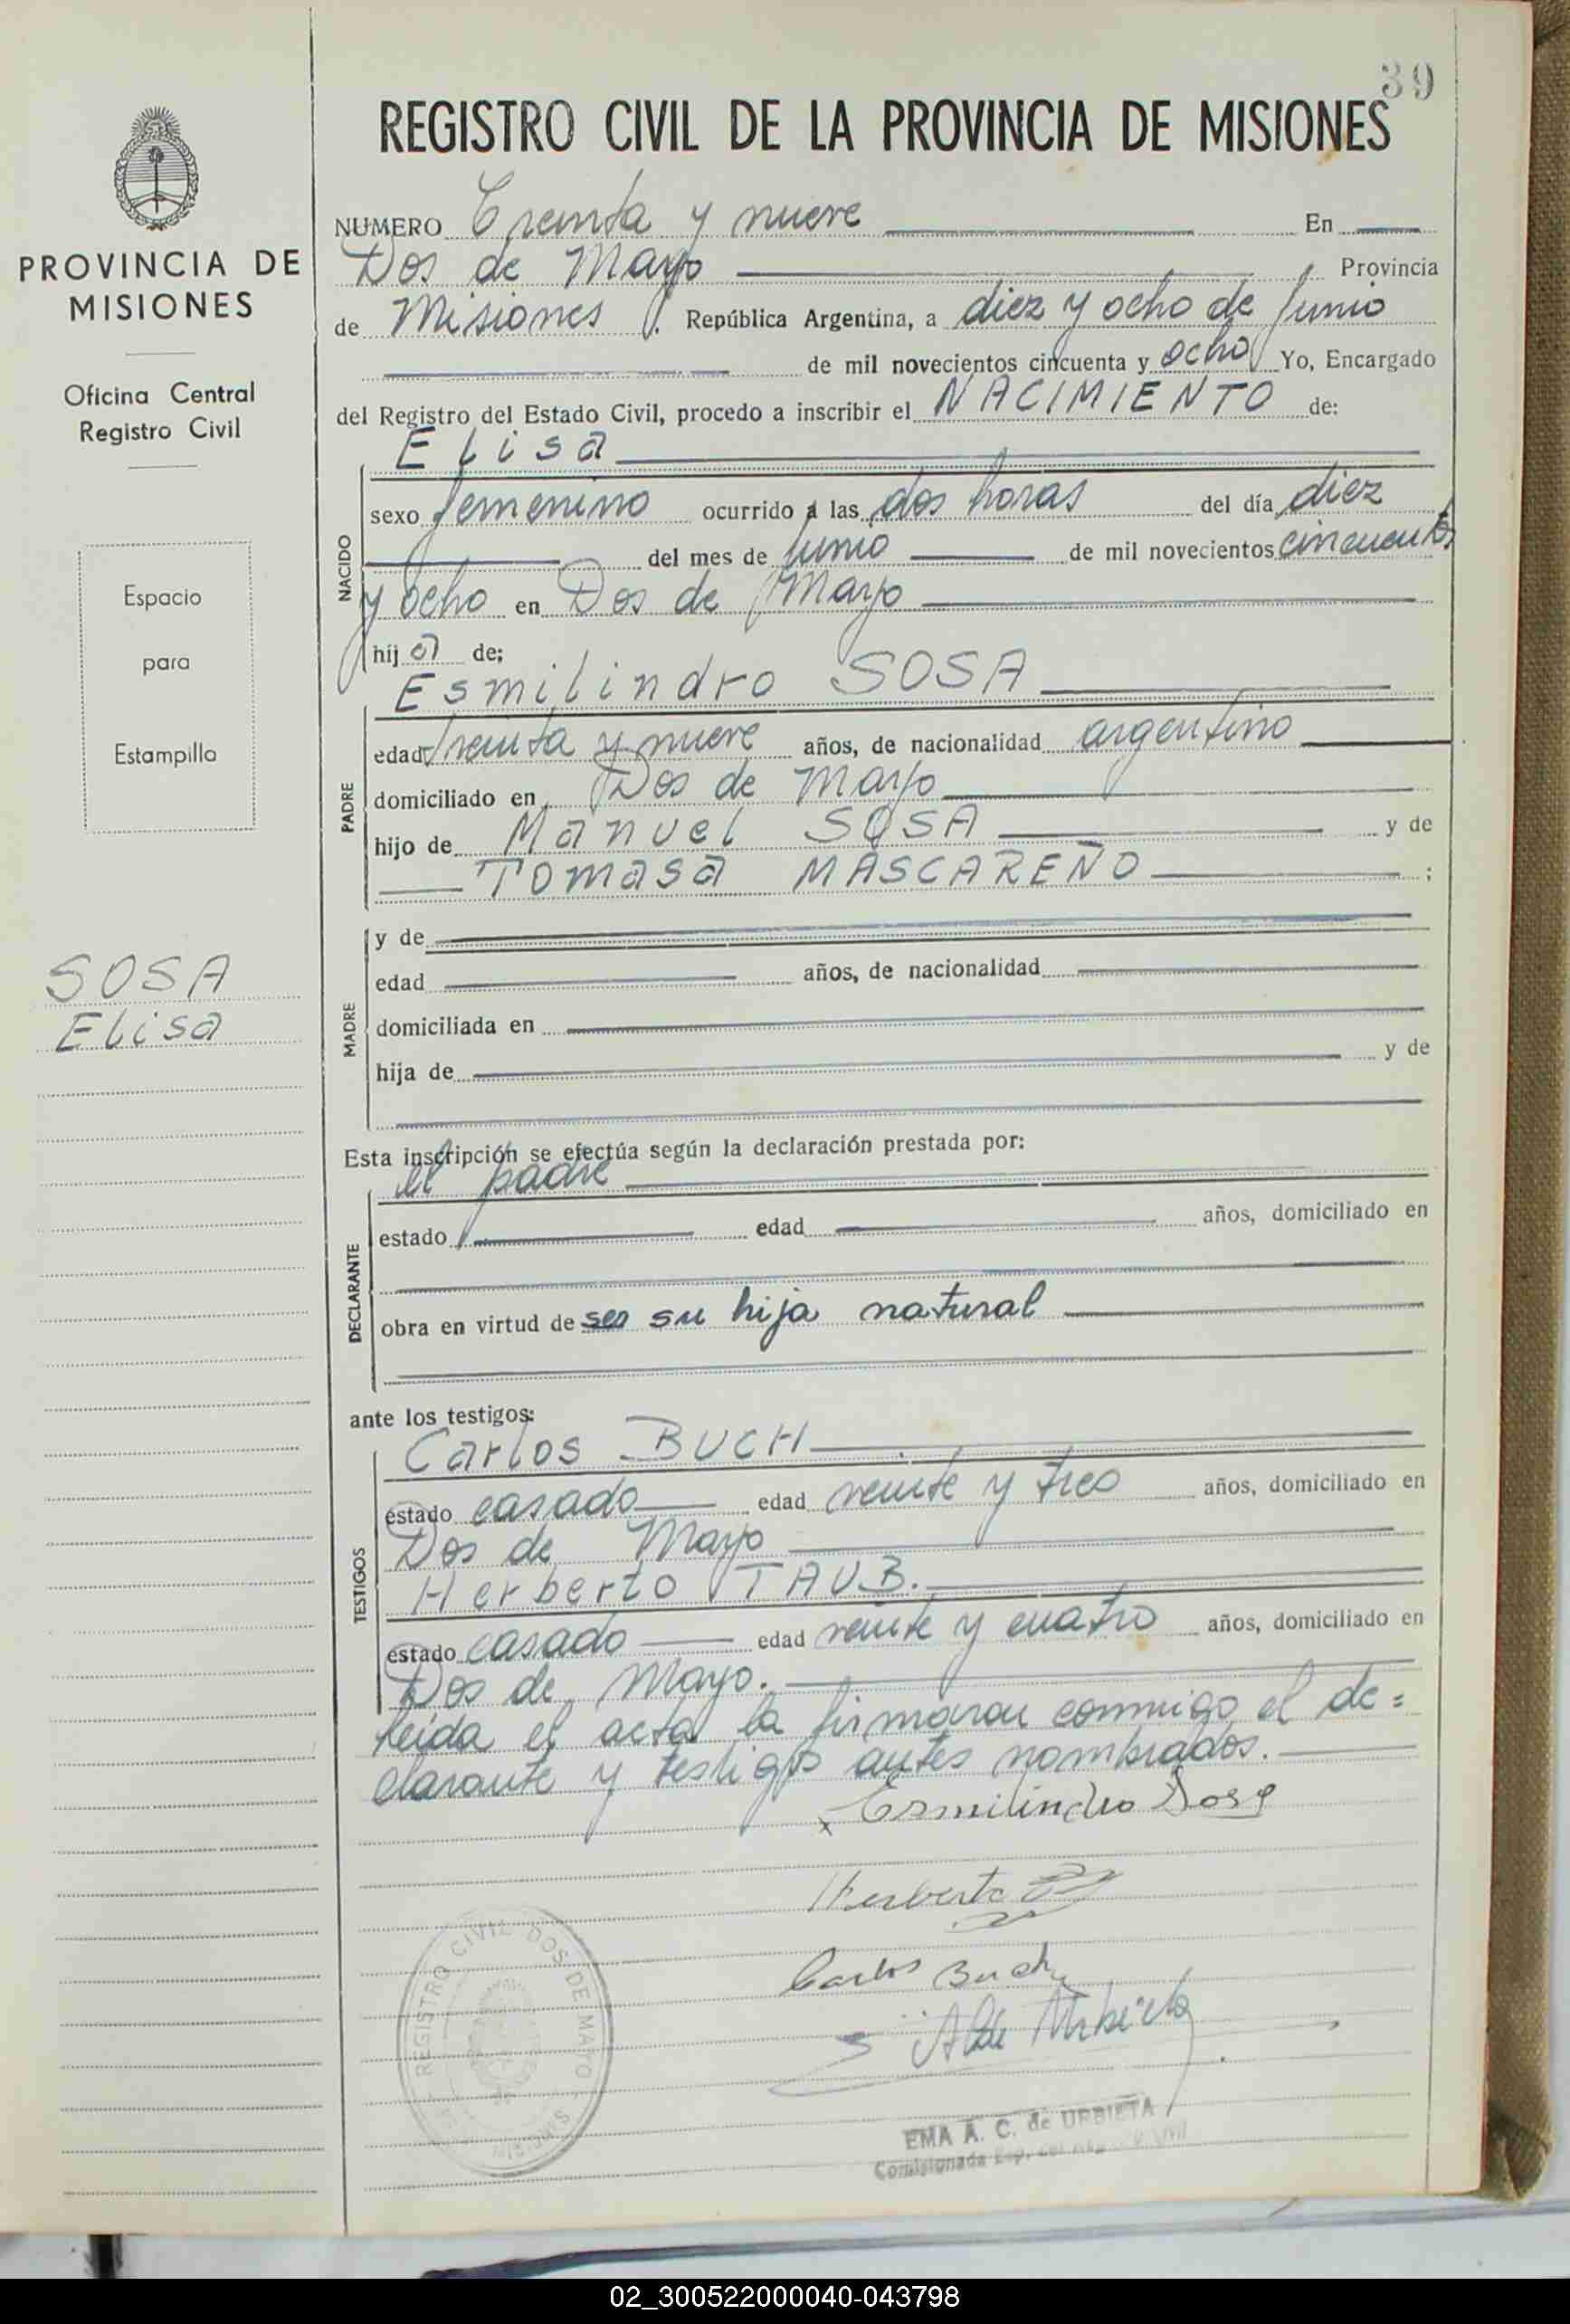 39
REGISTRO CIVIL DE LA PROVINCIA DE MISIONES
PROVINCIA DE
MISIONES
Oficina Central
Registro Civil
Espacio
para
Estampilla
SOSA
Elisa
NUMERO Treinta y nueve En
Dos de Mayo Provincia
de Misiones. República Argentina, a diez y ocho de Junio
de mil novecientos cincuenta y ocho Yo, Encargado
del Registro del Estado Civil, procedo a inscribir el NACIMIENTO de:
NACIDO
Elisa
sexo femenino ocurrido a las dos horas del día diez
del mes de Junio de mil novecientos cincuenta
y ocho en Dos de Mayo
hija de:
PADRE
Esmilindro SOSA
edad treinta y nueve años, de nacionalidad argentino
domiciliado en Dos de Mayo
hijo de Manuel SOSA y de
Tomasa MASCAREÑO ;
MADRE
y de
edad años, de nacionalidad
domiciliada en
hija de y de
Esta inscripción se efectúa según la declaración prestada por:
DECLARANTE
el padre
estado edad años, domiciliado en
obra en virtud de ser su hija natural
ante los testigos:
TESTIGOS
Carlos BUCH
estado casado edad veinte y tres años, domiciliado en
Dos de Mayo
Herberto TAUB.
estado casado edad veinte y cuatro años, domiciliado en
Dos de Mayo.
Leida el acta la firmaron conmigo el de=
clarante y testigos antes nombrados.
x Esmilindro Sosa
Herberto
Carlos Buch
REGISTRO CIVIL DOS DE MAYO
EMA A. C. de URBIETA
Comisionada
02_300522000040-043798